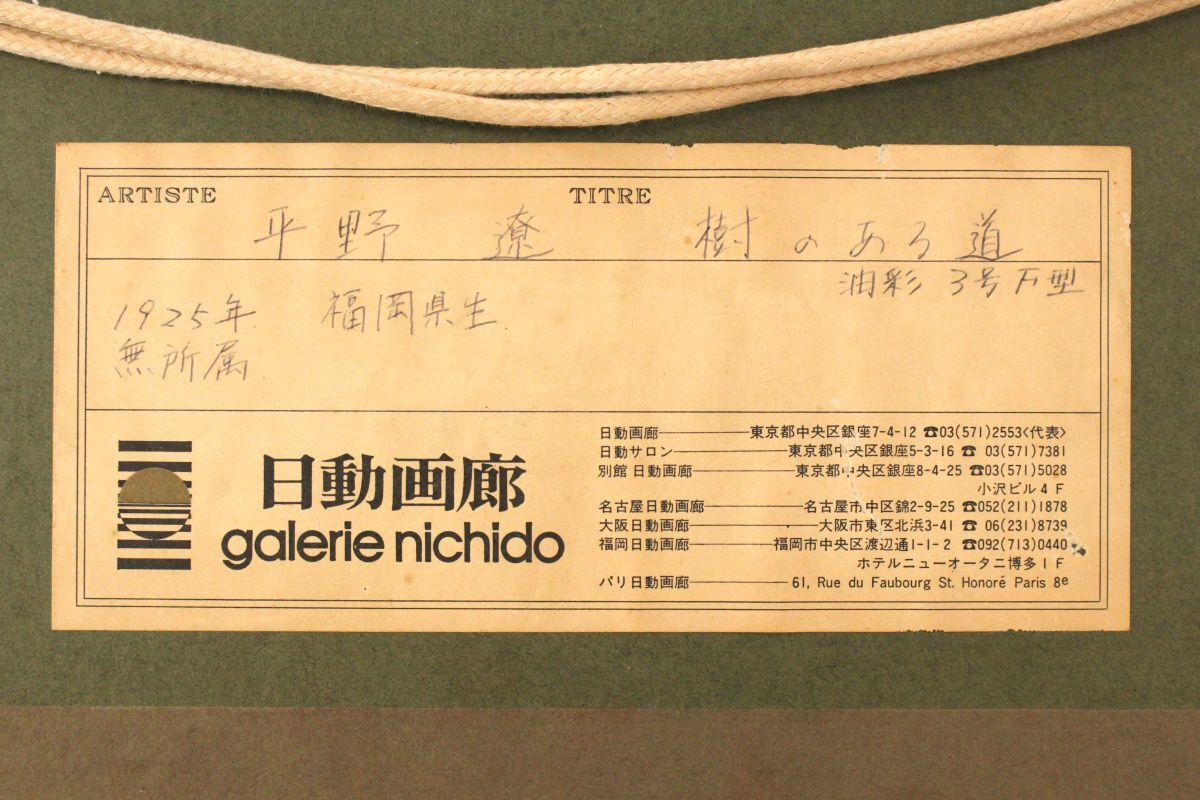 ARTISTE TITRE
平野 遼 樹のある道
油彩 3号F型
1925年 福岡県生
無所属
日動画廊
galerie nichido
日動画廊――――東京都中央区銀座7-4-12 ☎03(571)2553<代表>
日動サロン――――東京都中央区銀座5-3-16 ☎ 03(571)7381
別館 日動画廊――――東京都中央区銀座8-4-25 ☎03(571)5028
小沢ビル4F
名古屋日動画廊――――名古屋市中区錦2-9-25 ☎052(211)1878
大阪日動画廊――――大阪市東区北浜3-41 ☎ 06(231)8739
福岡日動画廊――――福岡市中央区渡辺通1-1-2 ☎092(713)0440
ホテルニューオータニ博多1F
パリ日動画廊――――61, Rue du Faubourg St. Honoré Paris 8e